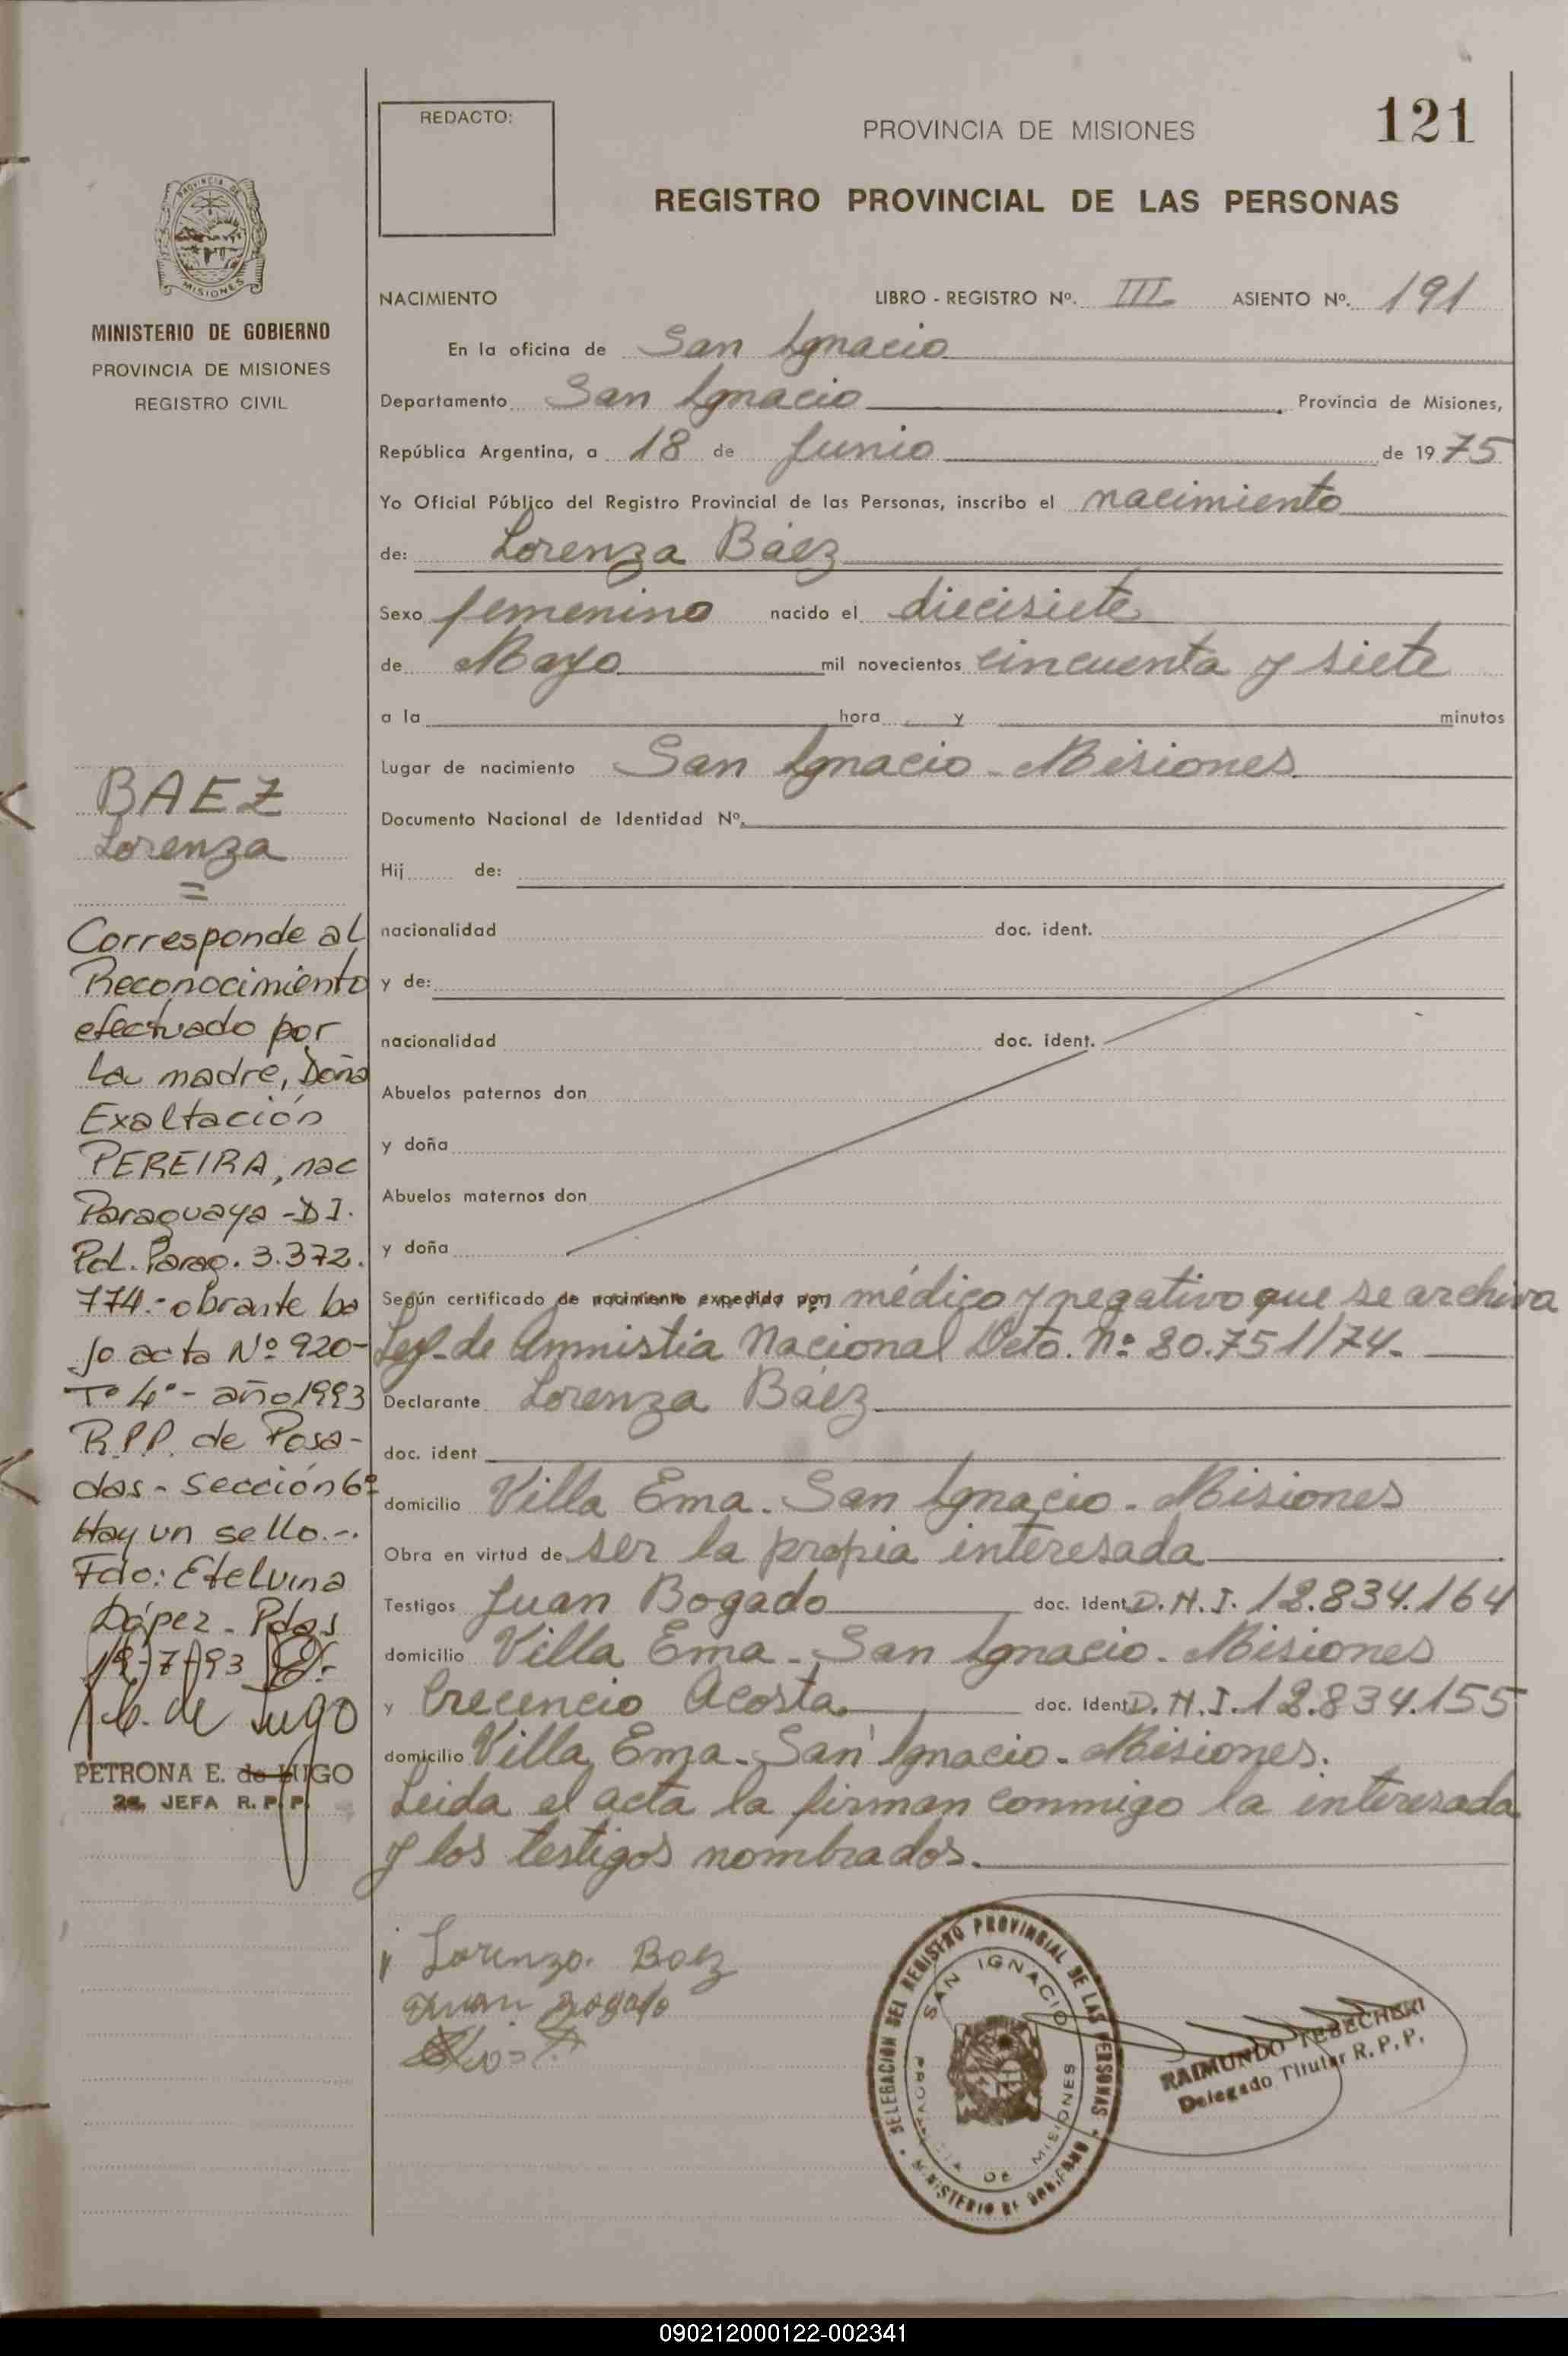 REDACTO:
PROVINCIA DE MISIONES
121
REGISTRO PROVINCIAL DE LAS PERSONAS
PROVINCIA DE
MISIONES
MINISTERIO DE GOBIERNO
PROVINCIA DE MISIONES
REGISTRO CIVIL
NACIMIENTO LIBRO - REGISTRO Nº. III ASIENTO Nº. 191
En la oficina de San Ignacio
Departamento San Ignacio Provincia de Misiones,
República Argentina, a 18 de Junio de 1975
Yo Oficial Público del Registro Provincial de las Personas, inscribo el nacimiento
de: Lorenza Báez
Sexo femenino nacido el diecisiete
de Mayo mil novecientos cincuenta y siete
a la hora y minutos
Lugar de nacimiento San Ignacio - Misiones
Documento Nacional de Identidad Nº.
Hij de:
nacionalidad doc. ident.
y de:
nacionalidad doc. ident.
Abuelos paternos don
y doña
Abuelos maternos don
y doña
Según certificado de nacimiento expedido por médico y negativo que se archiva
Ley de Amnistía Nacional Deto. Nº 80.751/74.
Declarante Lorenza Báez
doc. ident
domicilio Villa Ema - San Ignacio - Misiones
Obra en virtud de ser la propia interesada
Testigos Juan Bogado doc. ident D.N.I. 12.834.164
domicilio Villa Ema - San Ignacio - Misiones
y Crecencio Acosta doc. ident D.N.I. 12.834.155
domicilio Villa Ema - San Ignacio - Misiones.
Leida el acta la firman conmigo la interesada
y los testigos nombrados.
BAEZ
Lorenza
=
Corresponde al
Reconocimiento
efectuado por
La madre, Doña
Exaltación
PEREIRA, nac
Paraguaya - D I.
Pol. Parag. 3.372.
774.- obrante ba
jo acta Nº 920-
Tº 4º - año 1993
R.P.P. de Posa-
das - Sección 6º
Hay un sello.-.
Fdo: Etelvina
López - Pdas
19-7-93
de Lugo
PETRONA E. de LUGO
2a. JEFA R. P. P.
Lorenza Baez
Juan Bogado
DELEGACION DEL REGISTRO PROVINCIAL DE LAS PERSONAS
SAN IGNACIO
PROVINCIA DE MISIONES
MINISTERIO DE GOBIERNO
RAIMUNDO TEBECHERI
Delegado Titular R. P. P.
090212000122-002341